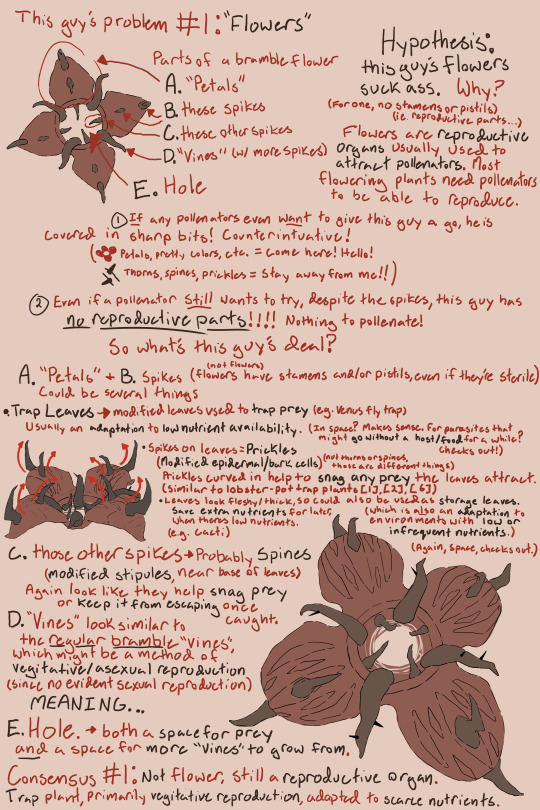 This guy's problem #1: "Flowers"
Parts of a bramble flower
A. "Petals"
B. these spikes
C. these other spikes
D. "Vines" (w/ more spikes)
E. Hole
Hypothesis:
this guy's flowers
suck ass. Why?
(For one, no stamens or pistils)
(ie. reproductive parts...)
Flowers are reproductive
organs usually used to
attract pollenators. Most
flowering plants need pollenators
to be able to reproduce.
① If any pollenators even want to give this guy a go, he is
covered in sharp bits! Counterintuative!
( Petals, pretty colors, etc. = Come here! Hello!
Thorns, spines, prickles = Stay away from me!!)
② Even if a pollenator still wants to try, despite the spikes, this guy has
no reproductive parts!!!! Nothing to pollenate!
So what's this guy's deal?
(not flowers)
A. "Petals" + B. Spikes (flowers have stamens and/or pistils, even if they're sterile)
Could be several things
• Trap Leaves → modified leaves used to trap prey (eg. Venus fly trap)
Usually an adaptation to low nutrient availability. (In space? Makes sense. For parasites that
might go without a host/food for a while?
Checks out!)
• Spikes on leaves = Prickles
(Modified epidermal/bark cells) (not thorns or spines,
those are different things)
Prickles curved in help to snag any prey the leaves attract.
(Similar to lobster-pot trap plants [1], [2], [6])
• Leaves look fleshy/thick, so could also be used as storage leaves.
Save extra nutrients for later,
when theres low nutrients.
(e.g. cacti)
(which is also an adaptation to
environments with low or
infrequent nutrients.)
(Again, space, checks out.)
C. those other spikes → Probably Spines
(modified stipules, near base of leaves)
Again look like they help snag prey
or keep it from escaping once
caught.
D. "Vines" look similar to
the regular bramble "vines",
which might be a method of
vegitative/asexual reproduction
(since no evident sexual reproduction)
MEANING...
E. Hole. → both a space for prey
and a space for more "Vines" to grow from.
Consensus #1: Not flower, still a reproductive organ.
Trap plant, primarily vegitative reproduction, adapted to scarce nutrients.